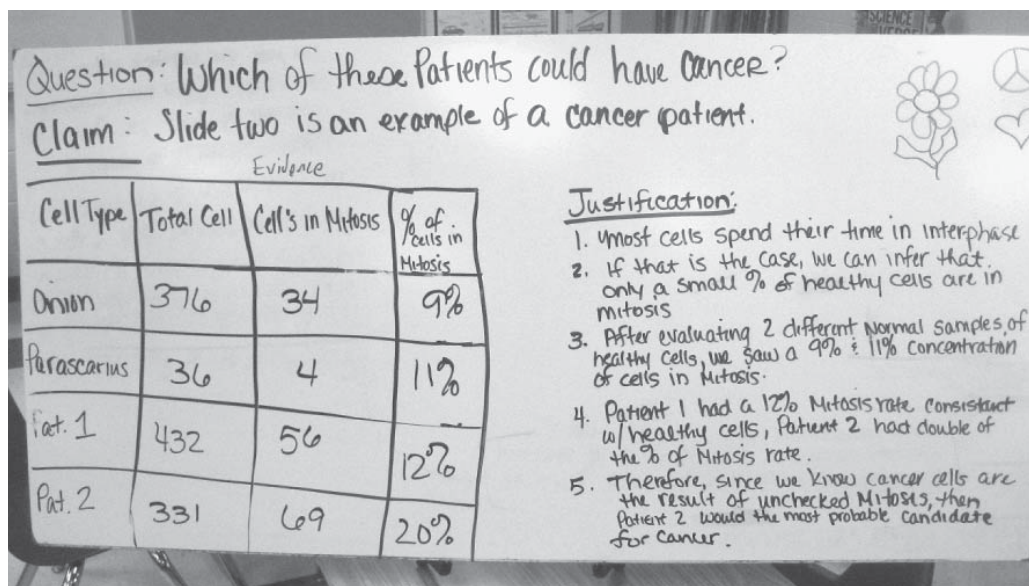 SCIENCE
Question: Which of these Patients could have cancer?
Claim: Slide two is an example of a cancer patient.
Evidence
Cell Type Total Cell Cell's in Mitosis % of cells in Mitosis
Onion 376 34 9%
Parascarius 36 4 11%
Pat. 1 432 56 12%
Pat. 2 331 69 20%
Justification:
1. most cells spend their time in interphase
2. If that is the case, we can infer that
only a small % of healthy cells are in
mitosis
3. After evaluating 2 different Normal samples of
healthy cells, we saw a 9% & 11% concentration
of cells in Mitosis.
4. Patient 1 had a 12% Mitosis rate consistant
w/ healthy cells, Patient 2 had double of
the % of Mitosis rate.
5. Therefore, since we know cancer cells are
the result of unchecked Mitosis, then
Patient 2 would the most probable candidate
for cancer.